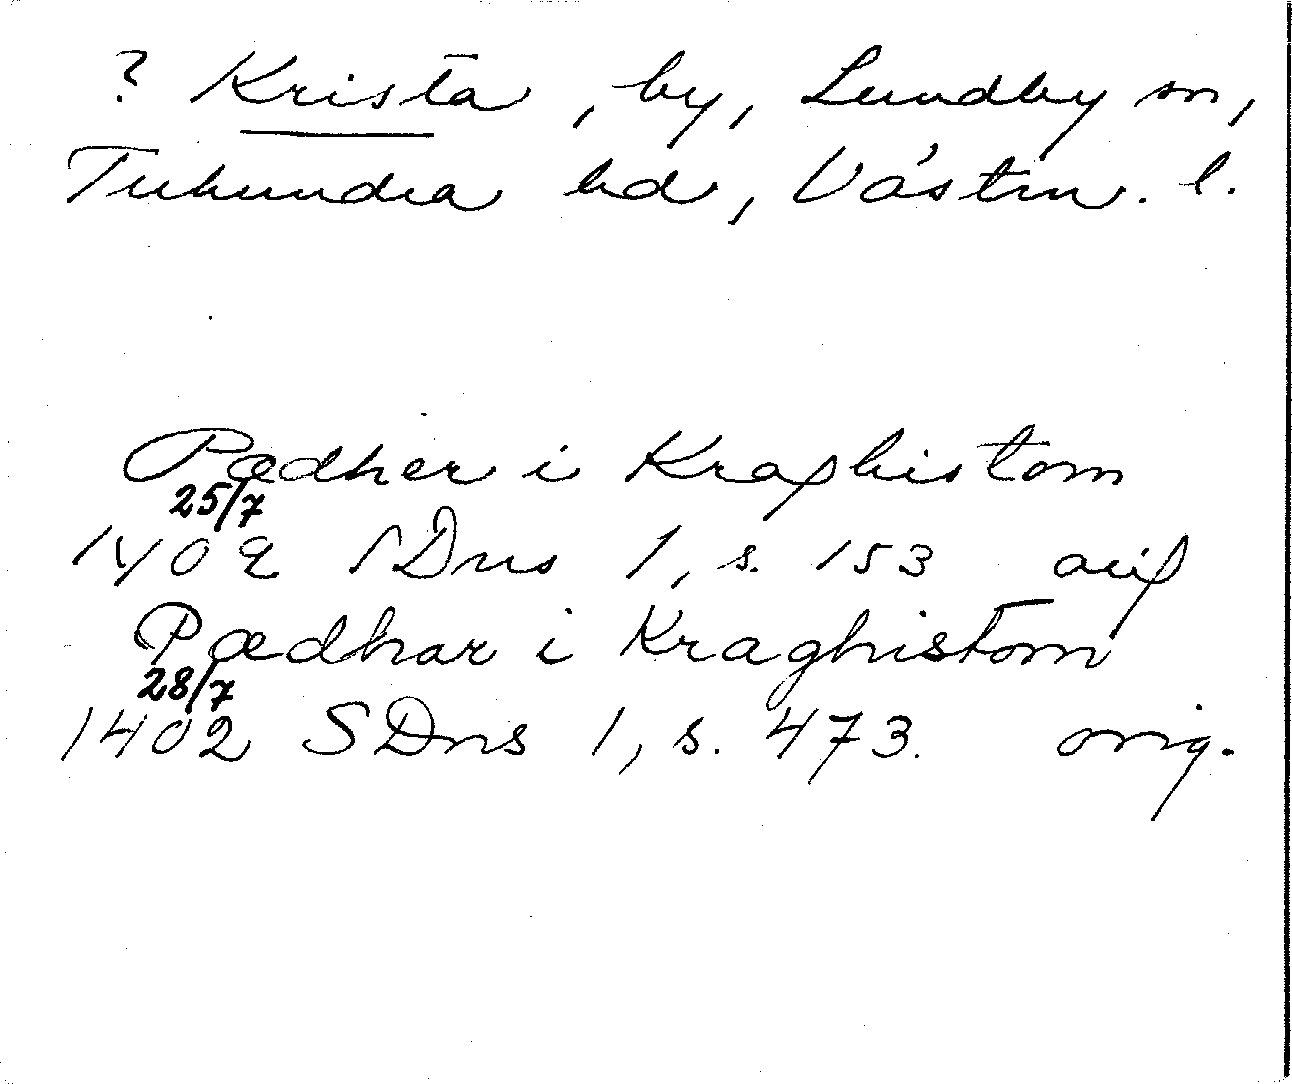 ? Krista, by, Lundby sn,
Tuhundra hd, Västm. l.
Pædher i Kraghistom
25/7
1402 SDns 1, s. 153 avs
Pædhar i Kraghistom
28/7
1402 SDns 1, s. 473. orig.